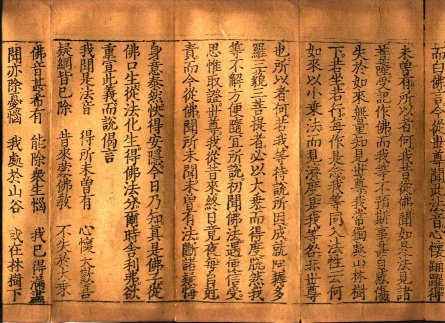 而白佛言今從世尊聞此法音心懷踊躍得
未曾有所以者何我昔從佛聞如是法見諸
菩薩受記作佛而我等不預斯事甚自感傷
失於如來無量知見世尊我常獨處山林樹
下若坐若行每作是念我等同入法性云何
如來以小乘法而見濟度是我等咎非世尊
也所以者何若我等待說所因成就阿耨多
羅三藐三菩提者必以大乘而得度脫然我
等不解方便隨宜所說初聞佛法遇便信受
思惟取證世尊我從昔來終日竟夜每自剋
責而今從佛聞所未聞未曾有法斷諸疑悔
身意泰然快得安隱今日乃知真是佛子從
佛口生從法化生得佛法分爾時舍利弗欲
重宣此義而說偈言
我聞是法音 得所未曾有 心懷大歡喜
疑網皆已除 昔來蒙佛教 不失於大乘
佛音甚希有 能除衆生惱 我已得漏盡
聞亦除憂惱 我處於山谷 或在林樹下